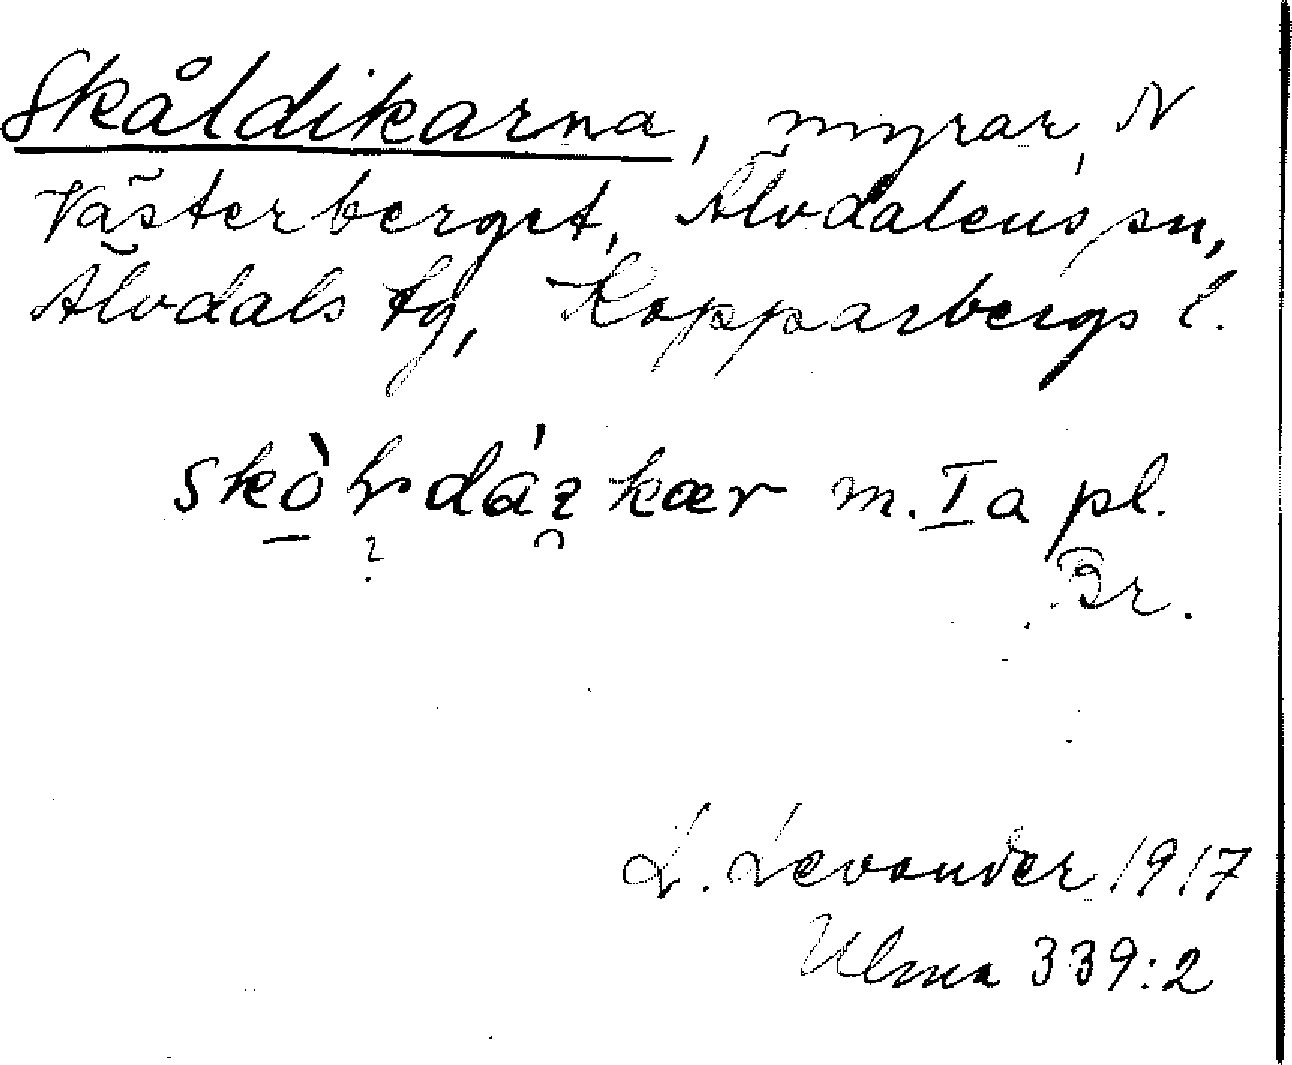 Skåldikarna, myrar N
Västerberget, Älvdalens sn,
Älvdals tg, Kopparbergs l.
m. I a pl.
Br.
L. Levander 1917
Ulma 339:2